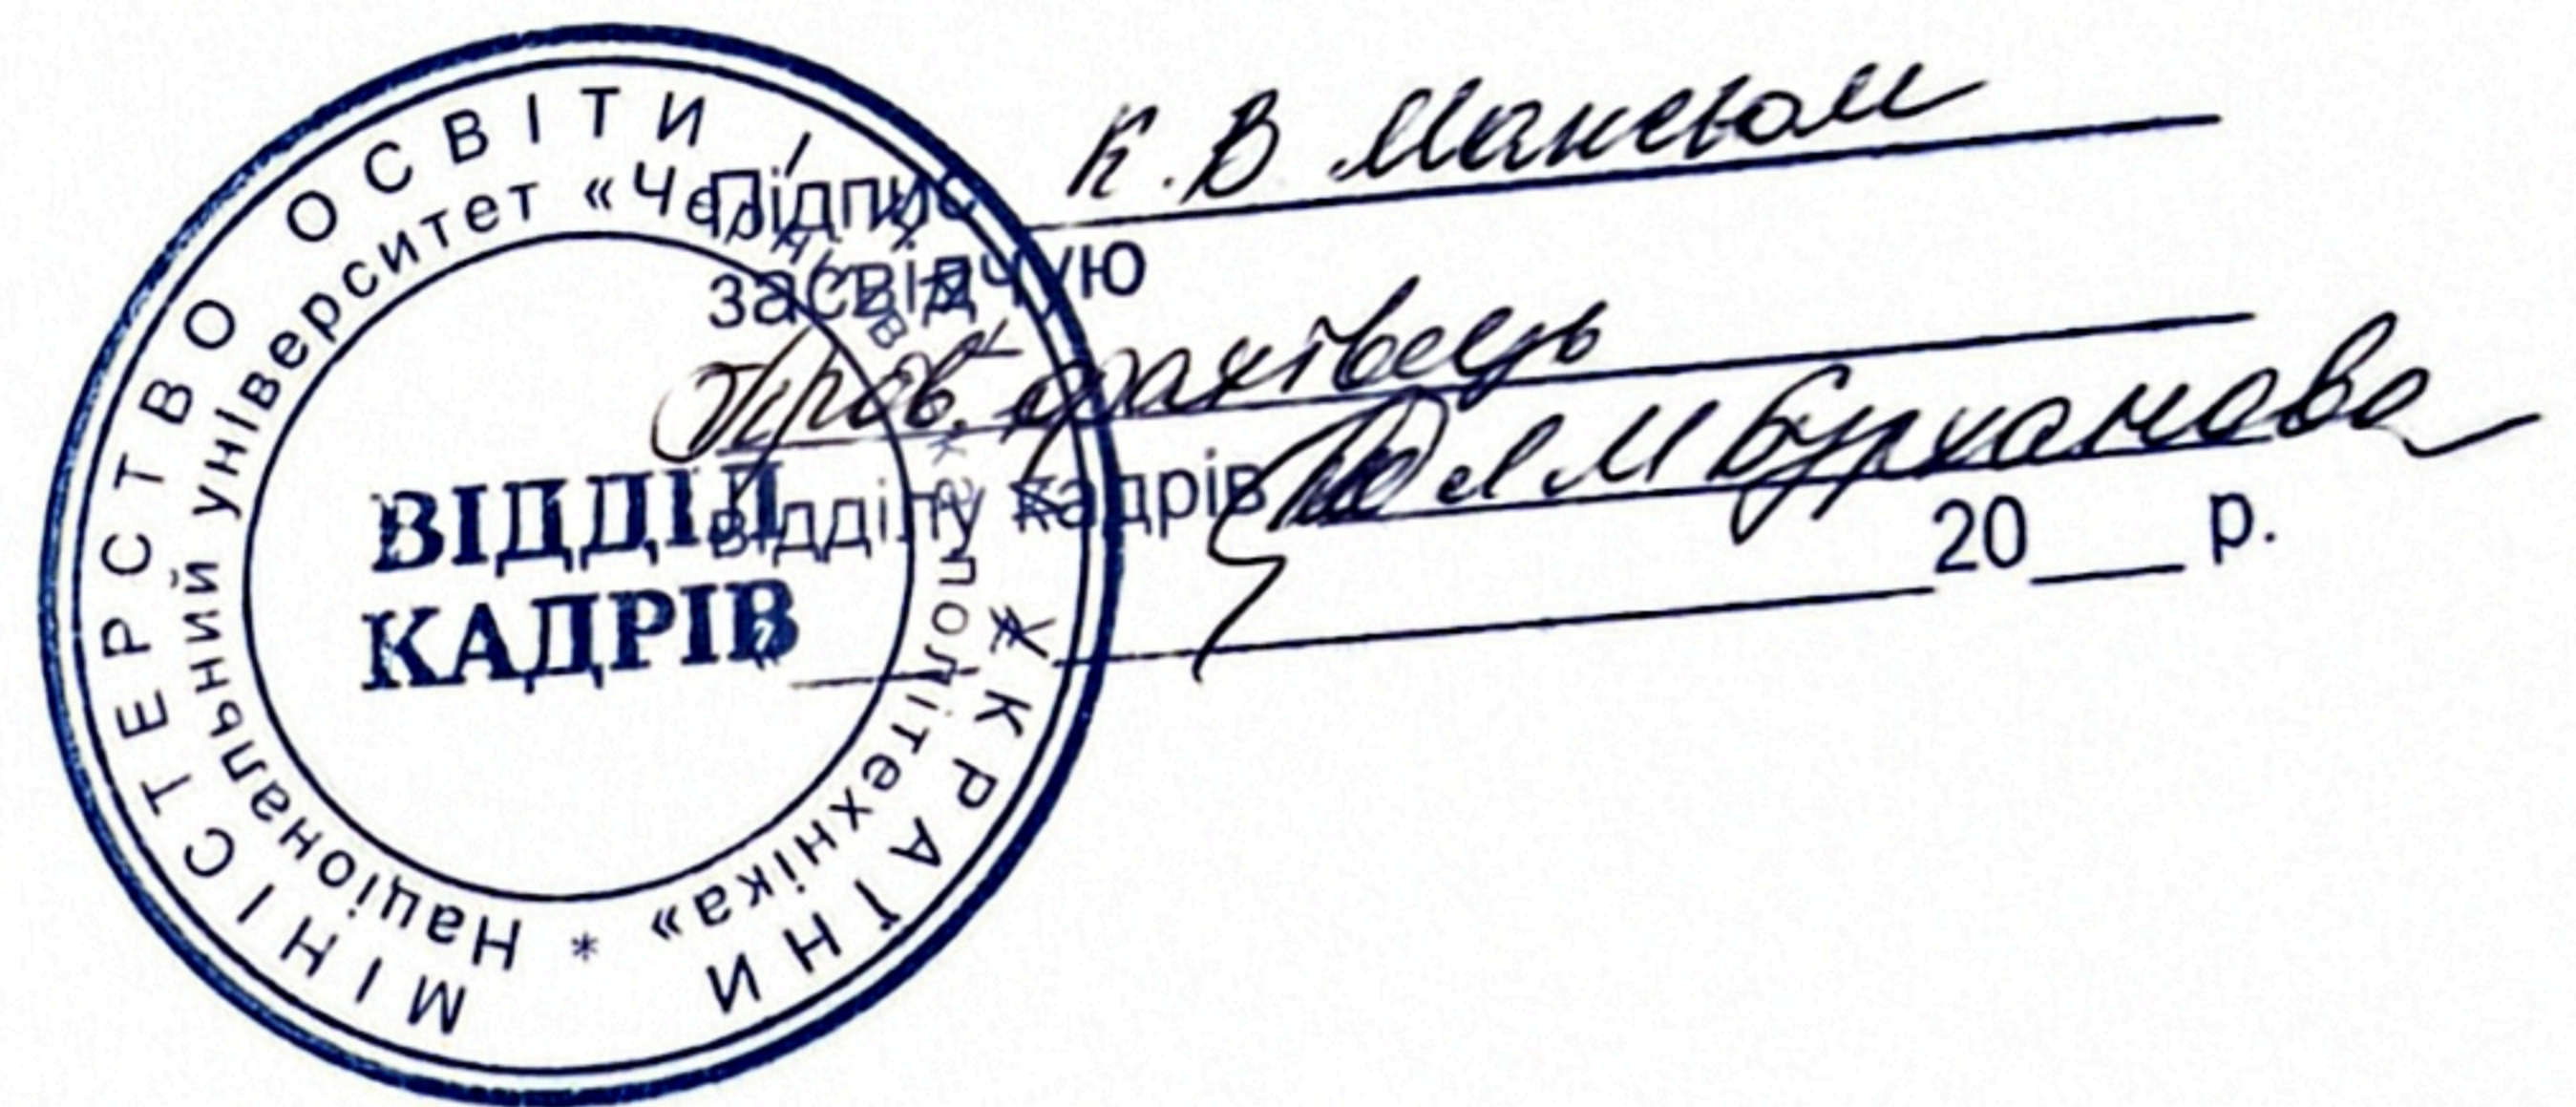 МІНІСТЕРСТВО ОСВІТИ І НАУКИ УКРАЇНИ
Національний університет «Чернігівська політехніка» *
ВІДДІЛ
КАДРІВ
Підпис К.В
засвідчую
Пров. фахівець
відділу кадрів Л М Бурханова
20___ р.